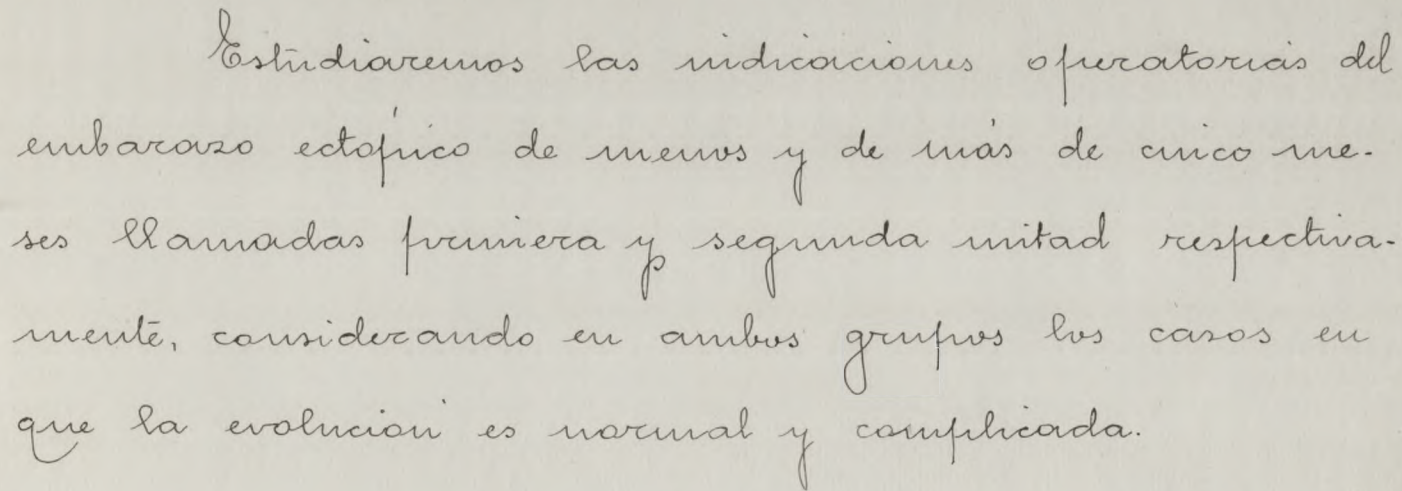 Estudiaremos las indicaciones operatorias del
embarazo ectópico de menos y de más de cinco me-
ses llamadas primera y segunda mitad respectiva-
mente, considerando en ambos grupos los casos en
que la evolución es normal y complicada.